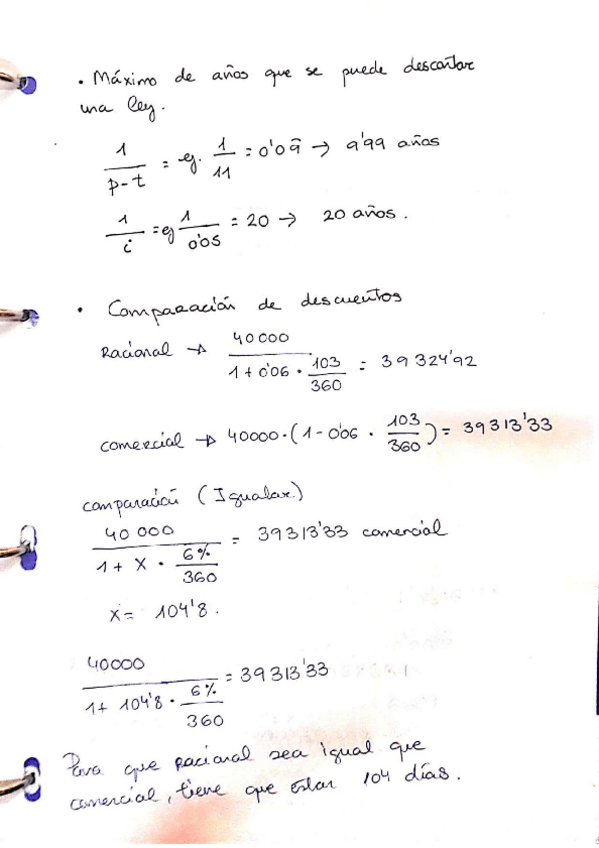 · Máximo de años que se puede descontar
una ley.
1/p-t = ej. 1/11 = 0'09̂ → 9'99 años
1/i = ej 1/0'05 = 20 → 20 años.
· Comparación de descuentos
Racional → 40000/1 + 0'06 · 103/360 = 39324'92
comercial → 40000·(1-0'06 · 103/360) = 39313'33
comparación (Igualar)
40 000/1 + X · 6%/360 = 39313'33 comercial
X = 104'8.
40000/1+ 104'8 · 6%/360 = 39313'33
Para que racional sea igual que
comercial, tiene que estar 104 días.